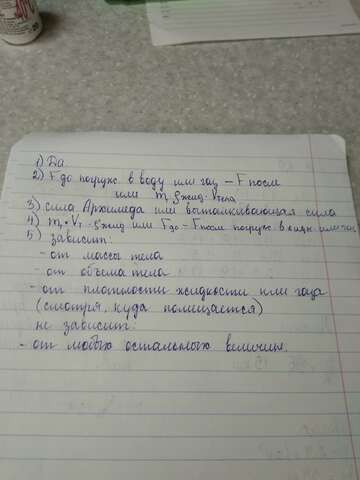 1) Да
2) F до погруж. в воду или газ – F после
или m ρжид. Vтела
3) сила Архимеда или выталкивающая сила
4) · Vт · ρжид или Fдо – Fпосле погруж. в жидк. или газ
5) зависит:
- от массы тела
- от объема тела
- от плотности жидкости или газа
(смотря, куда помещается)
не зависит:
- от любых остальных величин.